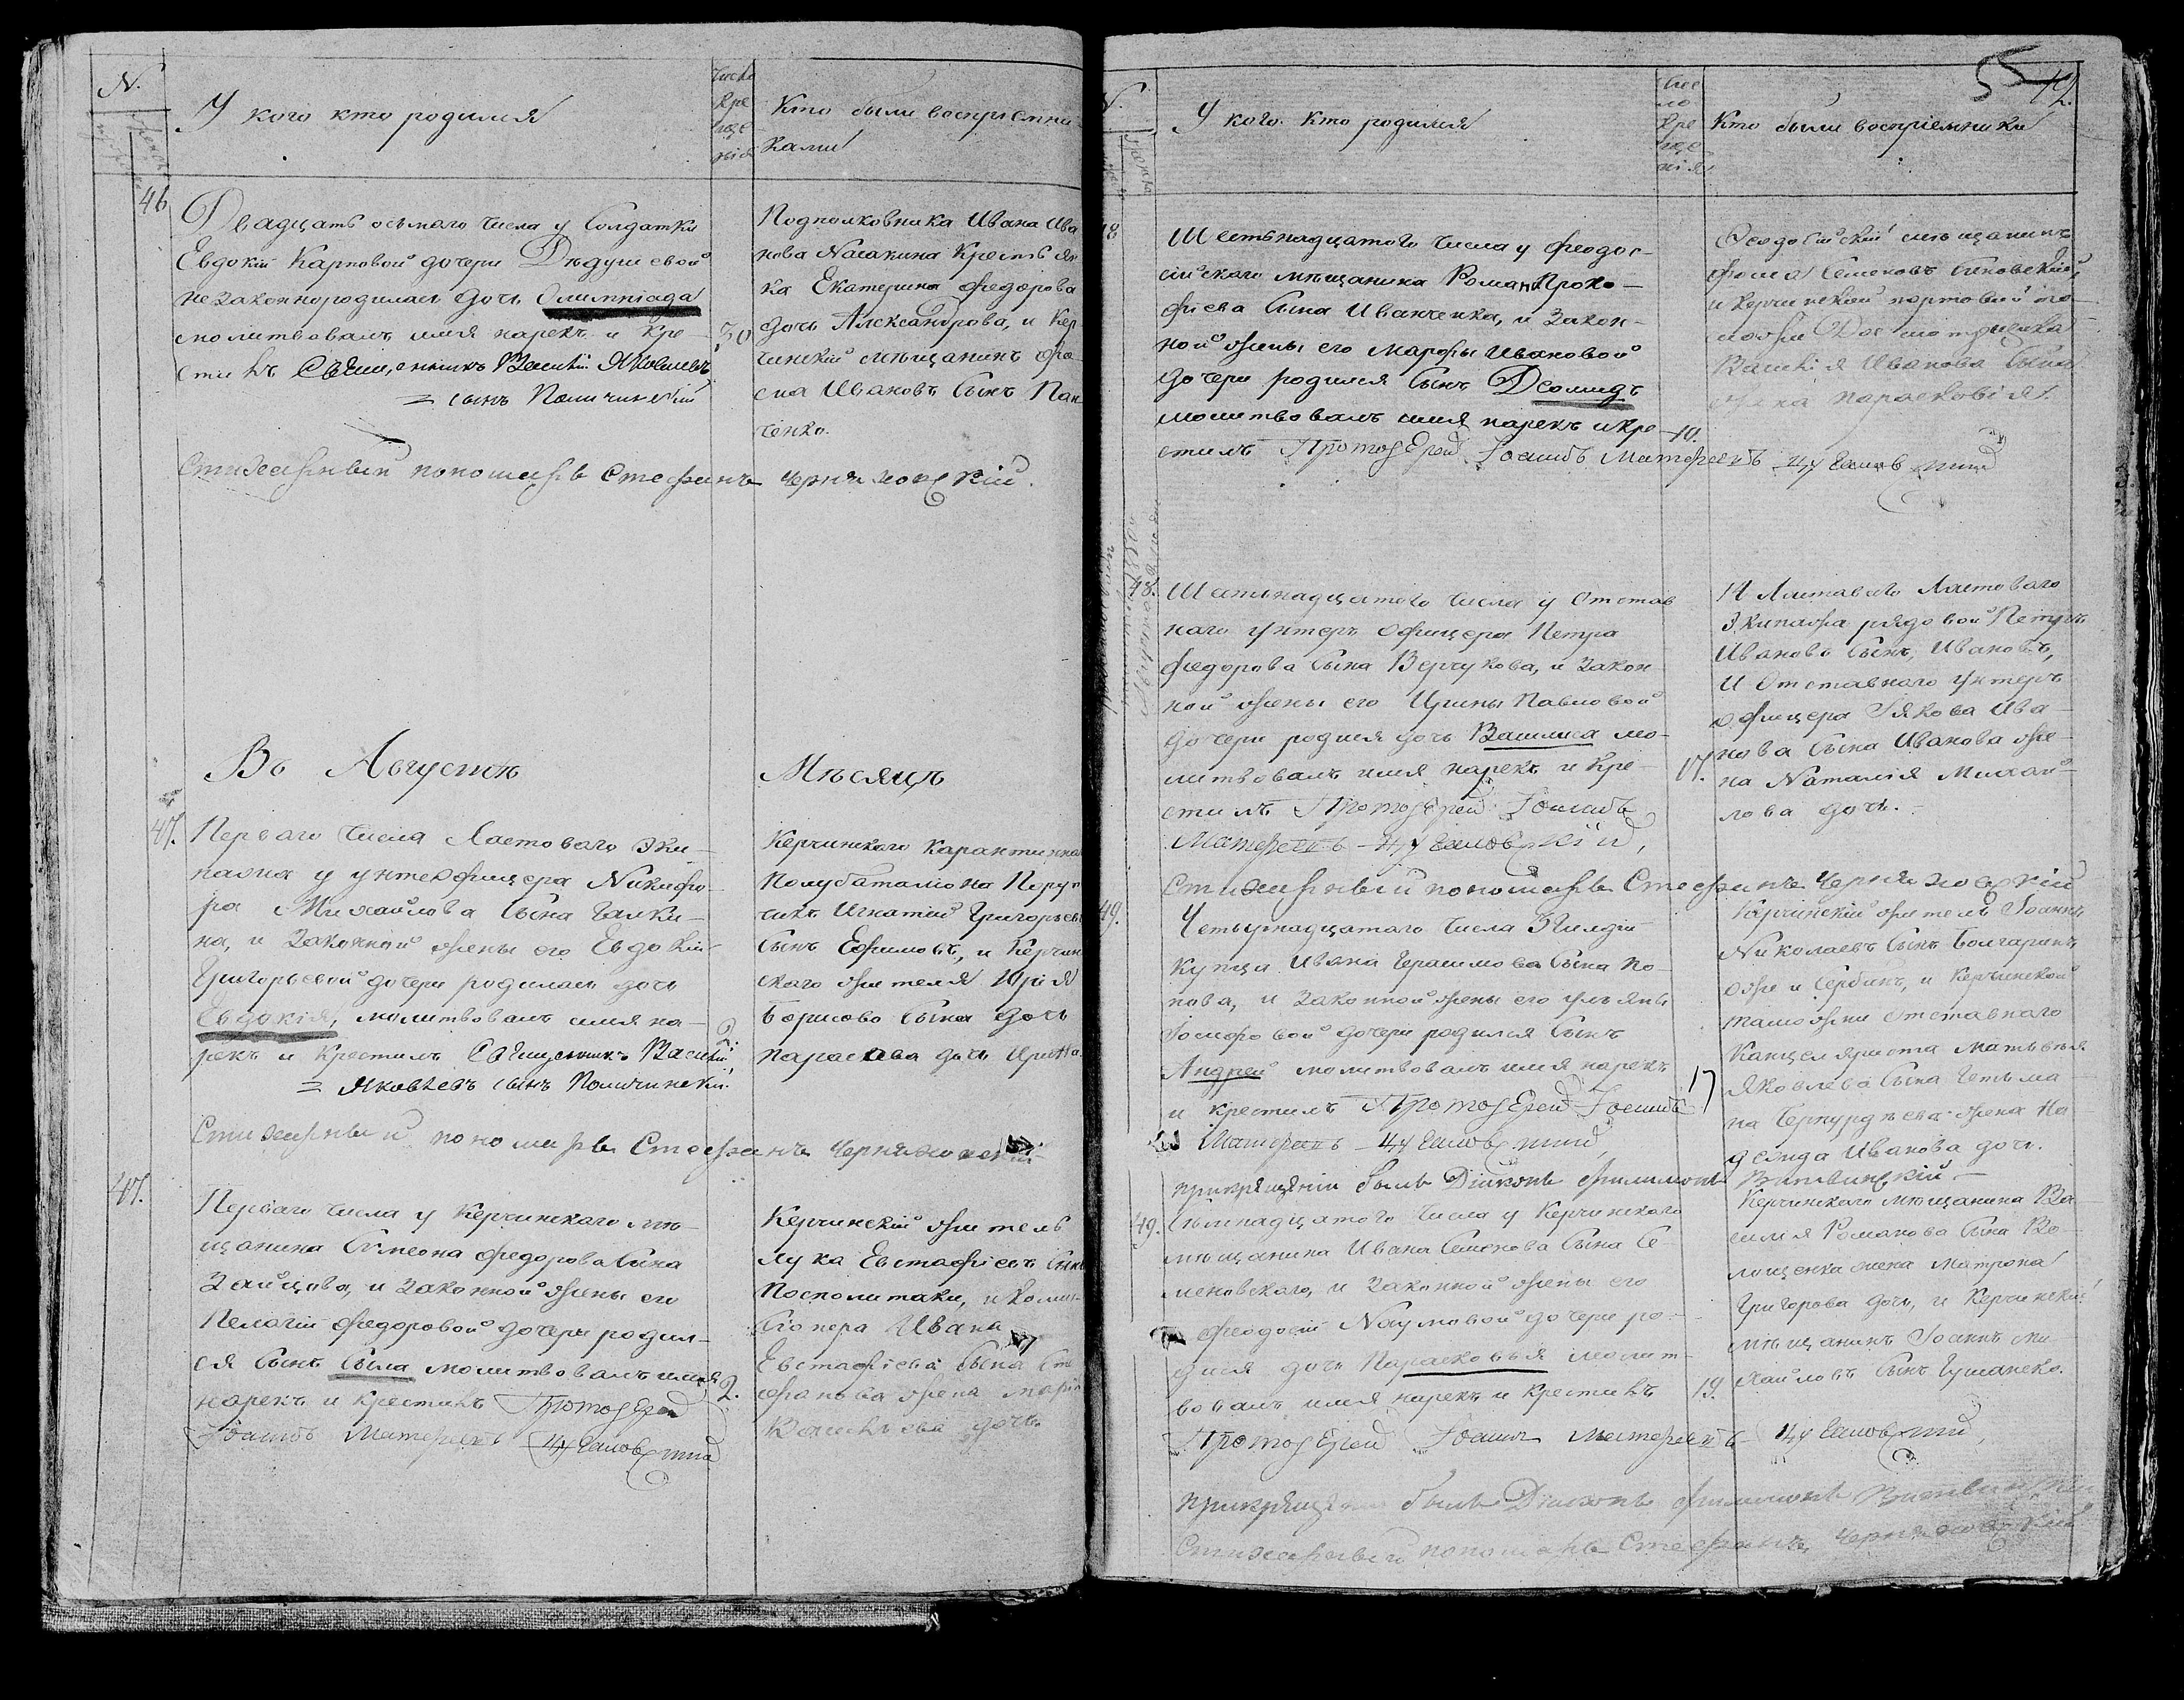 N.
У кого кто родился
Число
Кре
ще
нія
Кто были воспріемни
ками
46
Двадцать осьмаго числа у Солдатки
Евдокіи Карповой дочери Дѣдушевой
незаконнородилась дочь Олимпіада
молитвовалъ имя нарекъ и кре
стилъ Священникъ Василій Яковлевъ
= сынъ Поличинскій
30
Подполковника Ивана Ива
нова Насакина Крестьян
ка Екатерина Федорова
дочь Александрова, и Кер
чинскій мѣщанинъ Фо
ма Ивановъ Сынъ Пан
ченко.
Стихарный пономарь Стефанъ Черняховскій.
Въ Августѣ
Мѣсяцѣ
47.
Перваго числа Ластоваго Эки-
пажа у унтеофицера Никифо-
ра Михайлова Сына Галки-
на, и Законной жены его Евдокіи
Григорьевой дочери родилась дочь
Евдокія, молитвовалъ имя на-
рекъ и Крестилъ Священникъ Василій
= Яковлевъ сынъ Поличинскій.
2.
Керчинскаго Карантинна
Полубаталіона Пору
чикъ Игнатій Григорьев
Сынъ Ефимовъ, и Керчин
скаго жителя Юрія
Борисова Сына дочь
Параскева дочь Ирина.
Стихарный пономарь Стефанъ Черняховскій
47.
Перваго числа у Керчинскаго мѣ-
щанина Сѵмеона Федорова Сына
Зайцова, и Законной жены его
Пелагіи Федоровой дочери родил-
ся Сынъ Сыла молитвовалъ имя
нарекъ и Крестилъ Протоіерей
Іоаннъ Матереевъ
2.
Керчинскій житель
Лука Евстафіевъ Сынъ
Посполитаки, и Коми-
сіонера Ивана
Евстафіева Сына Сте
фанова жена Марія
Васильева дочь
55
42.
N.
У кого кто родился
Чис
ло
Кре
ще
нія
Кто были воспріемники
48
Шестьнадцатого числа у Феодос-
сійскаго мѣщанина Романа Проко-
фіева Сына Иванченка, и Закон-
ной жены его Марфы Ивановой
дочери родился Сынъ Деомидъ
молитвовалъ имя нарекъ и кре
стилъ Протоіерей Іоаннъ Матереевъ
Феодосійскій мѣщанинъ
Фома Семеновъ
и Керчинской портовой та-
можни
Василія Иванова Сына
жена Парасковія.
48.
Шестьнадцатого числа у Отстав
наго унтеръ офицера Петра
Федорова Сына Верчукова, и Закон
ной жены его Ирины Павловой
дочери родися дочь Василиса мо-
литвовалъ имя нарекъ и Кре-
стилъ Протоіерей Іоаннъ
Матереевъ
17.
14 Ластоваго
Экипажа рядовой Петръ
Ивановъ Сынъ, Ивановъ,
и Отставнаго Унтеръ
офицера Іякова Ива-
нова Сына Иванова же-
на Наталія Михай-
лова дочь.
Стихарный пономарь Стефанъ Черняховскій
49.
Четырнадцатаго числа 3 Гилдіи
Купца Ивана Герасимова Сына По-
пова, и Законной жены его Ульяны
Іосифовой дочери родился Сынъ
Андрей молитвовалъ имя нарекъ
и крестилъ Протоіерей Іоаннъ
Матереевъ
17
Керчинскій житель Іоаннъ
Николаевъ Сынъ Болгаринъ
онже и Сербинъ, и Керчинской
таможни отставнаго
Канцеляриста Матвѣя
Яковлева Сына Гетьма
на жена На
дежда Иванова дочь.
прикрещеніи былъ Діяконъ Филимонъ
49.
Семнадцатого числа у Керчинскаго
мѣщанина Ивана Семенова Сына Се-
меновскаго, и Законной жены его
Феодосіи Наумовой дочери ро-
дися дочь Парасковья молит-
вовалъ имя нарекъ и Крестилъ
Протоіерей Іоаннъ Матереевъ
19.
Керчинскаго мѣщанина Ва-
силія Романова Сына Во-
лощенка жена Матрона
Григорова дочь, и Керчинскій
мѣщанинъ Іоаннъ Ми-
хайловъ Сынъ Гуманеко.
прикрещеніи былъ Діяконъ Филимонъ
Стихарный пономарь Стефанъ Черняховскій